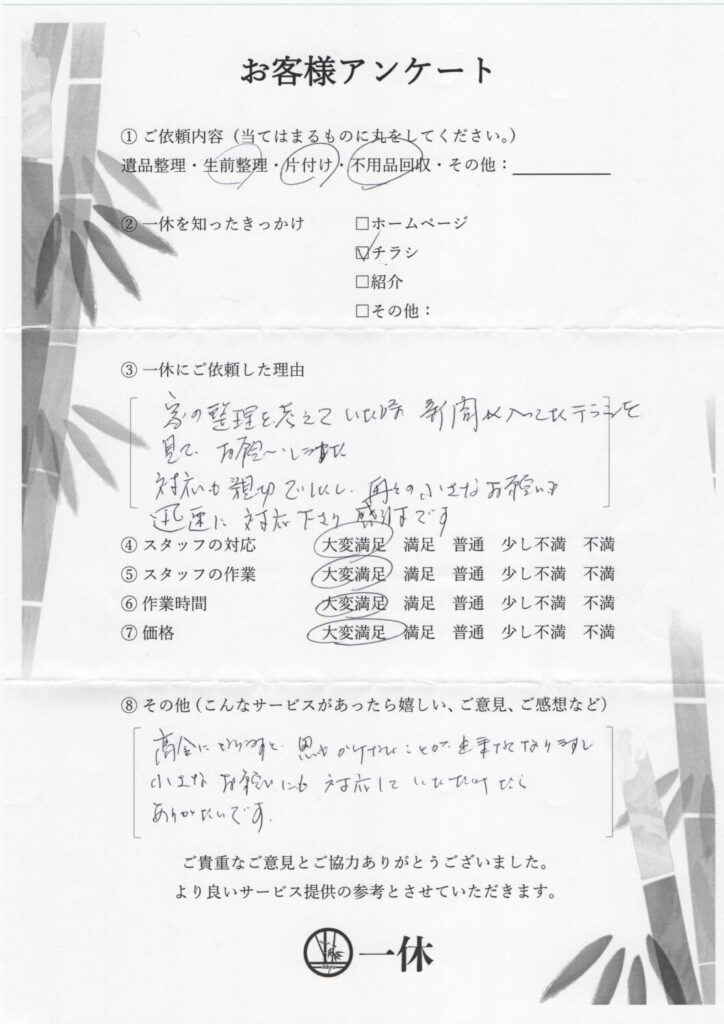 お客様アンケート
① ご依頼内容（当てはまるものに丸をしてください。）
遺品整理・生前整理・片付け・不用品回収・その他：
② 一休を知ったきっかけ
□ホームページ
☑チラシ
□紹介
□その他：
③ 一休にご依頼した理由
家の整理を考えていた時 新聞に入ってたチラシを
見て お願いしました
対応も親切でしたし、再々の小さなお願いも
迅速に 対応下さり 感謝です
④ スタッフの対応 大変満足 満足 普通 少し不満 不満
⑤ スタッフの作業 大変満足 満足 普通 少し不満 不満
⑥ 作業時間 大変満足 満足 普通 少し不満 不満
⑦ 価格 大変満足 満足 普通 少し不満 不満
⑧ その他（こんなサービスがあったら嬉しい、ご意見、ご感想など）
高令になりますと、思いがけないことが出来なくなりますし
小さな お願いにも 対応して いただけたら
ありがたいです。
ご貴重なご意見とご協力ありがとうございました。
より良いサービス提供の参考とさせていただきます。
一休